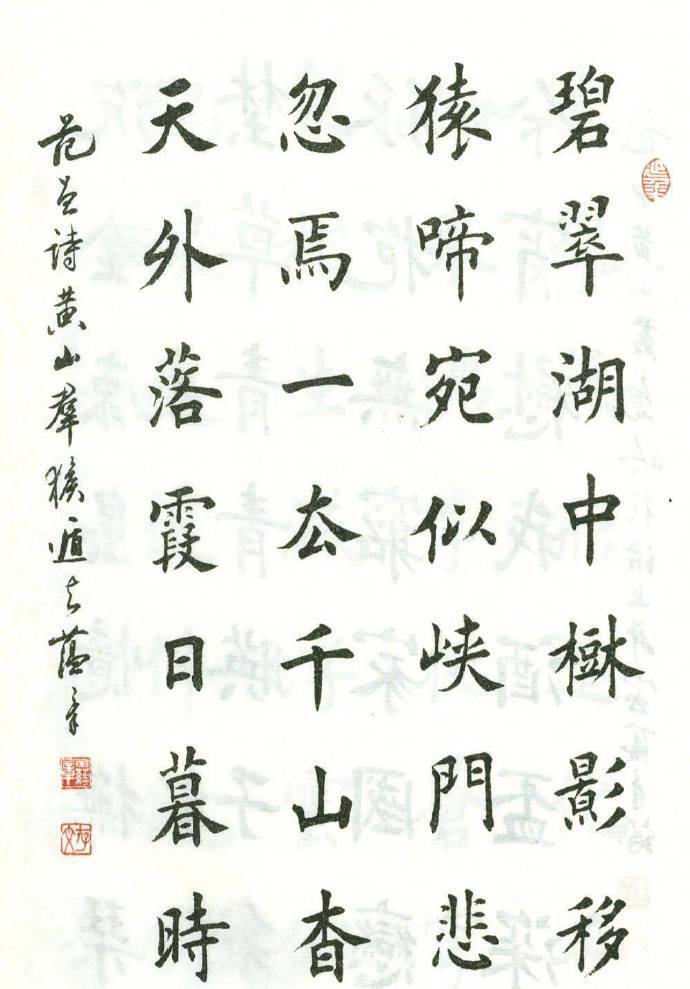 碧翠湖中樹影移
猿啼宛似峽門悲
忽焉一厺千山杳
天外落霞日暮時
范曾詩黄山羣猴遁去